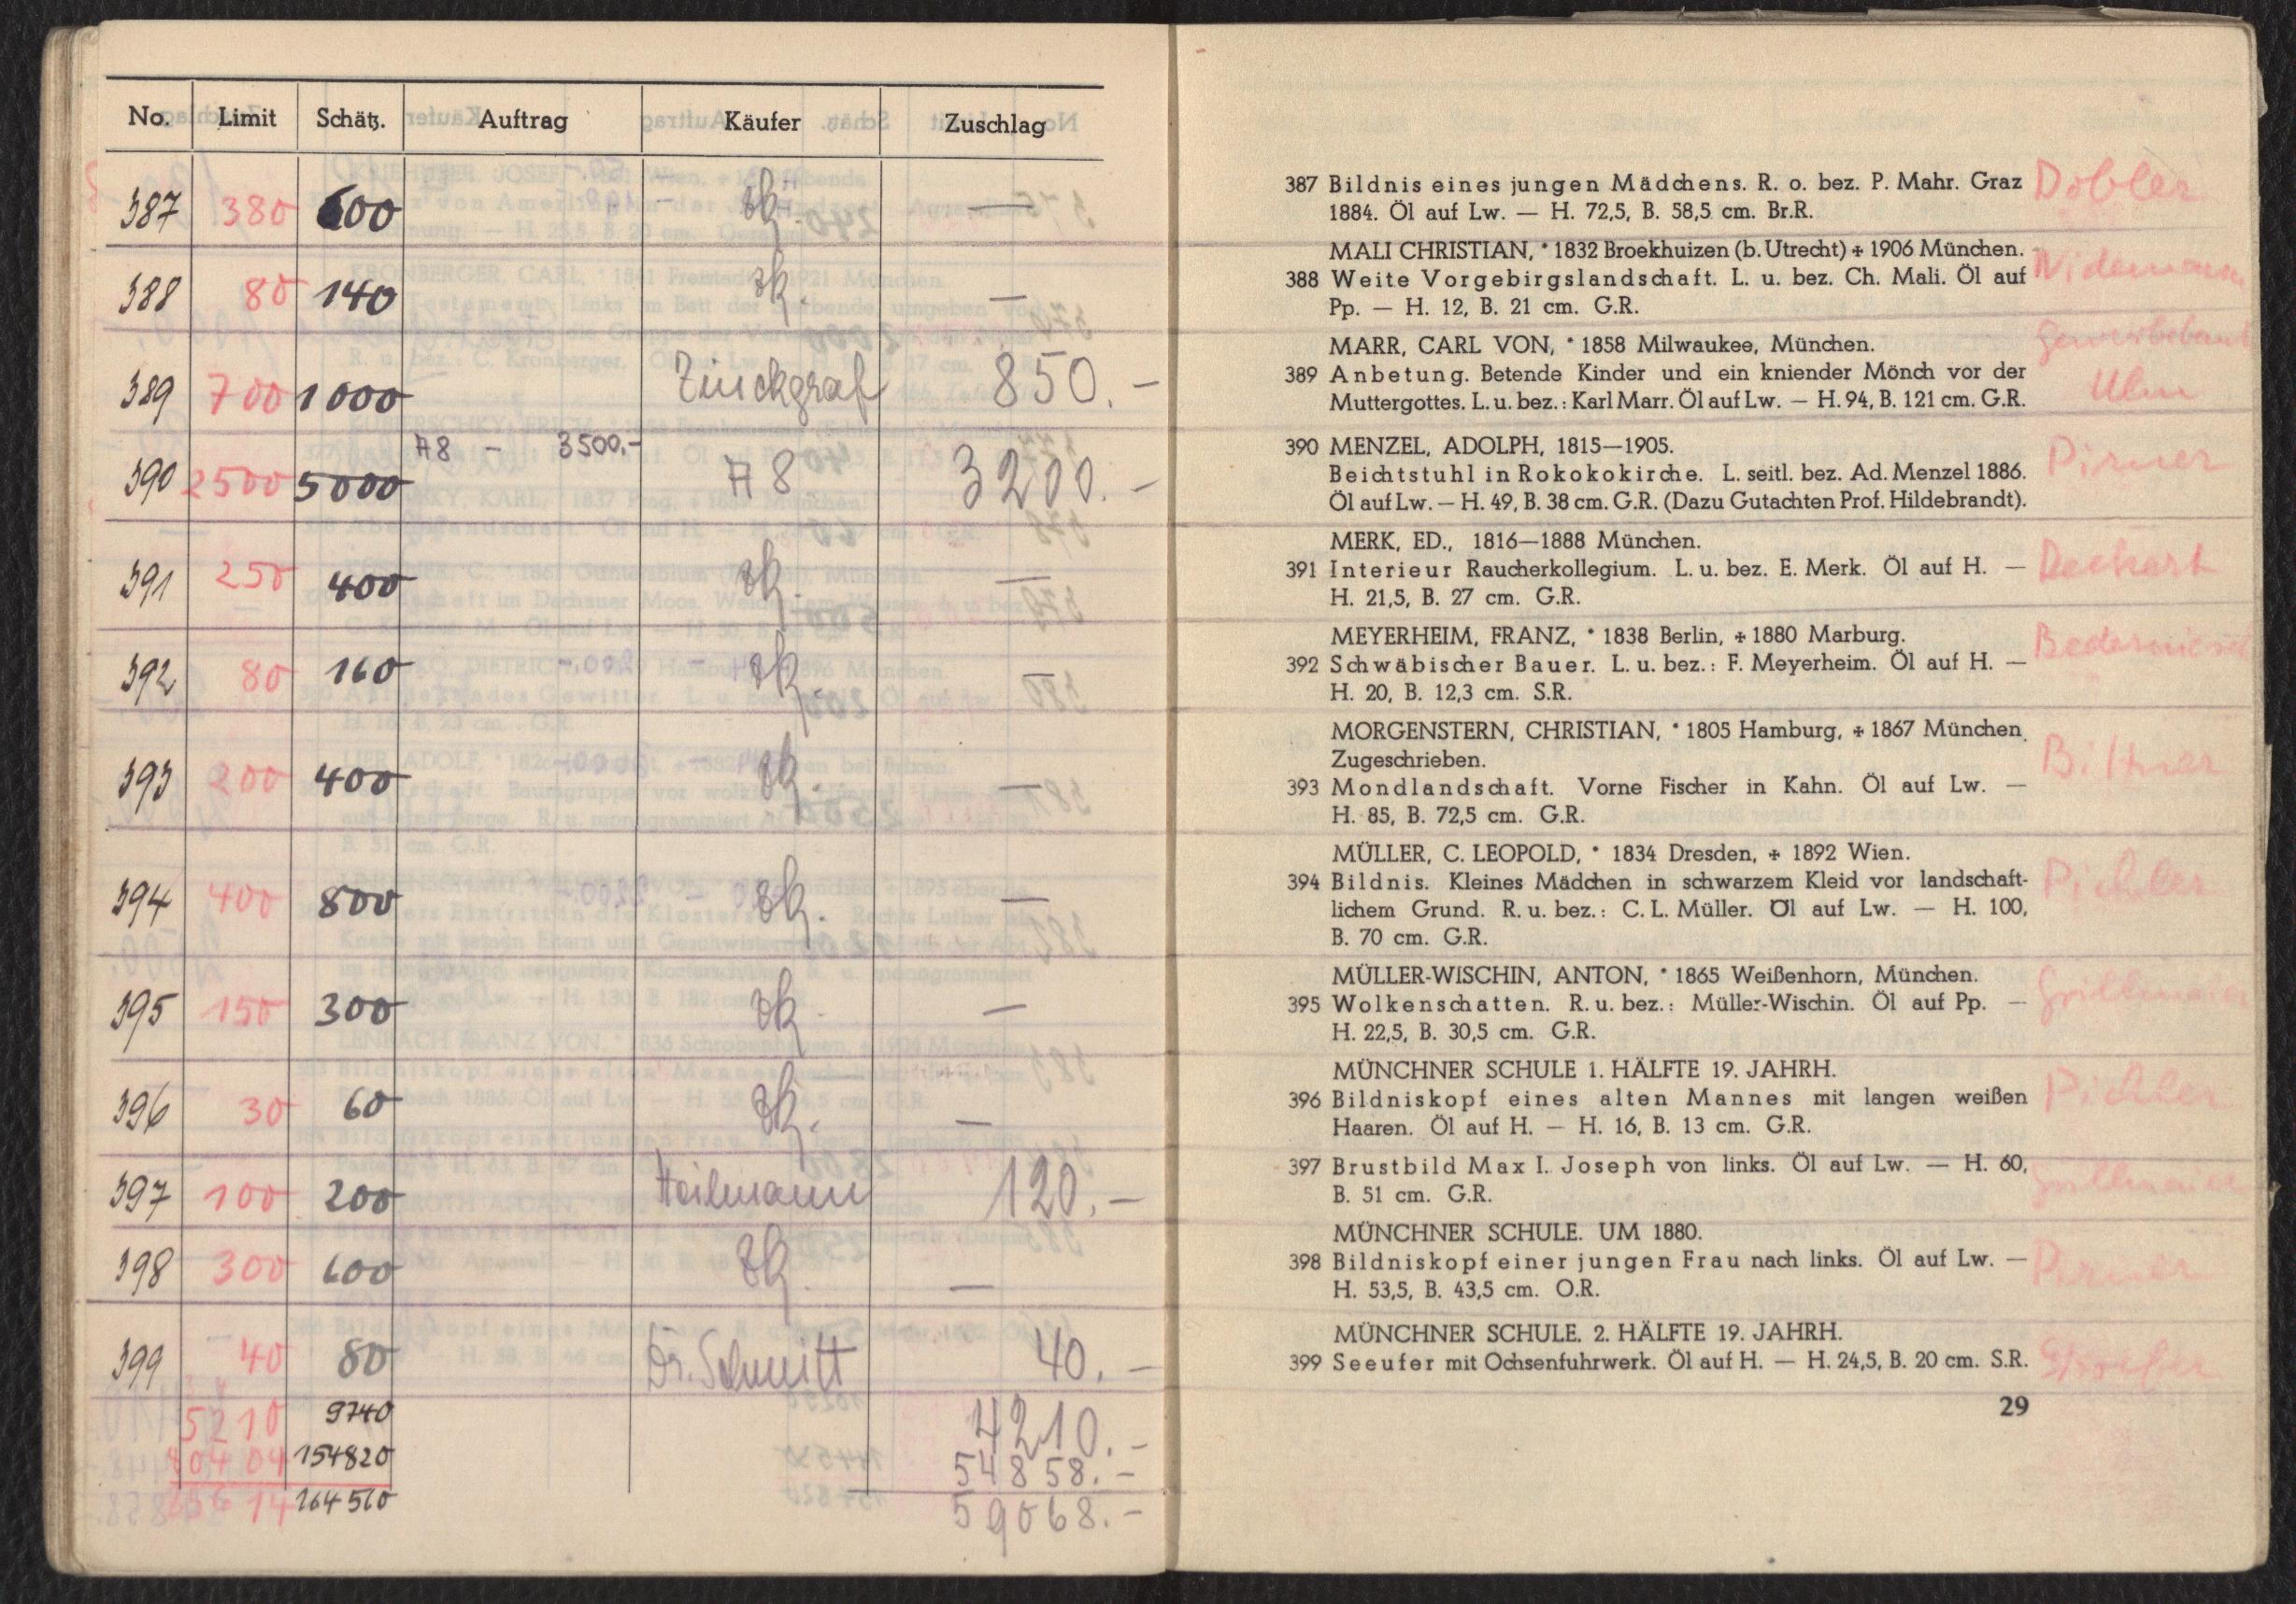 No. Limit Schätz. Auftrag Käufer Zuschlag
387 380 600 zk. —
388 80 140 zk. —
389 700 1000 Zinckgraf 850.—
A8 — 3500.—
390 2500 5000 A8 3200.—
391 250 400 zk. —
392 80 160 zk.
393 200 400 zk. —
394 400 800 zk. —
395 150 300 zk. —
396 30 60 zk. —
397 100 200 Heilmann 120.—
398 300 600 zk. —
399 40 80 Dr. Schmitt 40.—
5210 9740 4210.—
80404 154820 54858.—
14 164560 59068.—
387 Bildnis eines jungen Mädchens. R. o. bez. P. Mahr. Graz Dobler
1884. Öl auf Lw. — H. 72,5, B. 58,5 cm. Br.R.
MALI CHRISTIAN, * 1832 Broekhuizen (b. Utrecht) + 1906 München.
388 Weite Vorgebirgslandschaft. L. u. bez. Ch. Mali. Öl auf Widemann
Pp. — H. 12, B. 21 cm. G.R.
MARR, CARL VON, * 1858 Milwaukee, München. Gewerbebank
389 Anbetung. Betende Kinder und ein kniender Mönch vor der Ulm
Muttergottes. L. u. bez.: Karl Marr. Öl auf Lw. — H. 94, B. 121 cm. G.R.
390 MENZEL, ADOLPH, 1815—1905. Pirner
Beichtstuhl in Rokokokirche. L. seitl. bez. Ad. Menzel 1886.
Öl auf Lw. — H. 49, B. 38 cm. G.R. (Dazu Gutachten Prof. Hildebrandt).
MERK, ED., 1816—1888 München.
391 Interieur Raucherkollegium. L. u. bez. E. Merk. Öl auf H. — Deckert
H. 21,5, B. 27 cm. G.R.
MEYERHEIM, FRANZ, * 1838 Berlin, + 1880 Marburg.
392 Schwäbischer Bauer. L. u. bez.: F. Meyerheim. Öl auf H. —
H. 20, B. 12,3 cm. S.R.
MORGENSTERN, CHRISTIAN, * 1805 Hamburg, + 1867 München.
Zugeschrieben. Bittner
393 Mondlandschaft. Vorne Fischer in Kahn. Öl auf Lw. —
H. 85, B. 72,5 cm. G.R.
MÜLLER, C. LEOPOLD, * 1834 Dresden, + 1892 Wien.
394 Bildnis. Kleines Mädchen in schwarzem Kleid vor landschaft- Pichler
lichem Grund. R. u. bez.: C. L. Müller. Öl auf Lw. — H. 100,
B. 70 cm. G.R.
MÜLLER-WISCHIN, ANTON, * 1865 Weißenhorn, München.
395 Wolkenschatten. R. u. bez.: Müller-Wischin. Öl auf Pp. — Grillmaier
H. 22,5, B. 30,5 cm. G.R.
MÜNCHNER SCHULE 1. HÄLFTE 19. JAHRH.
396 Bildniskopf eines alten Mannes mit langen weißen Pichler
Haaren. Öl auf H. — H. 16, B. 13 cm. G.R.
397 Brustbild Max I. Joseph von links. Öl auf Lw. — H. 60, Grillmaier
B. 51 cm. G.R.
MÜNCHNER SCHULE. UM 1880.
398 Bildniskopf einer jungen Frau nach links. Öl auf Lw. — Pirner
H. 53,5, B. 43,5 cm. O.R.
MÜNCHNER SCHULE. 2. HÄLFTE 19. JAHRH.
399 Seeufer mit Ochsenfuhrwerk. Öl auf H. — H. 24,5, B. 20 cm. S.R.
29